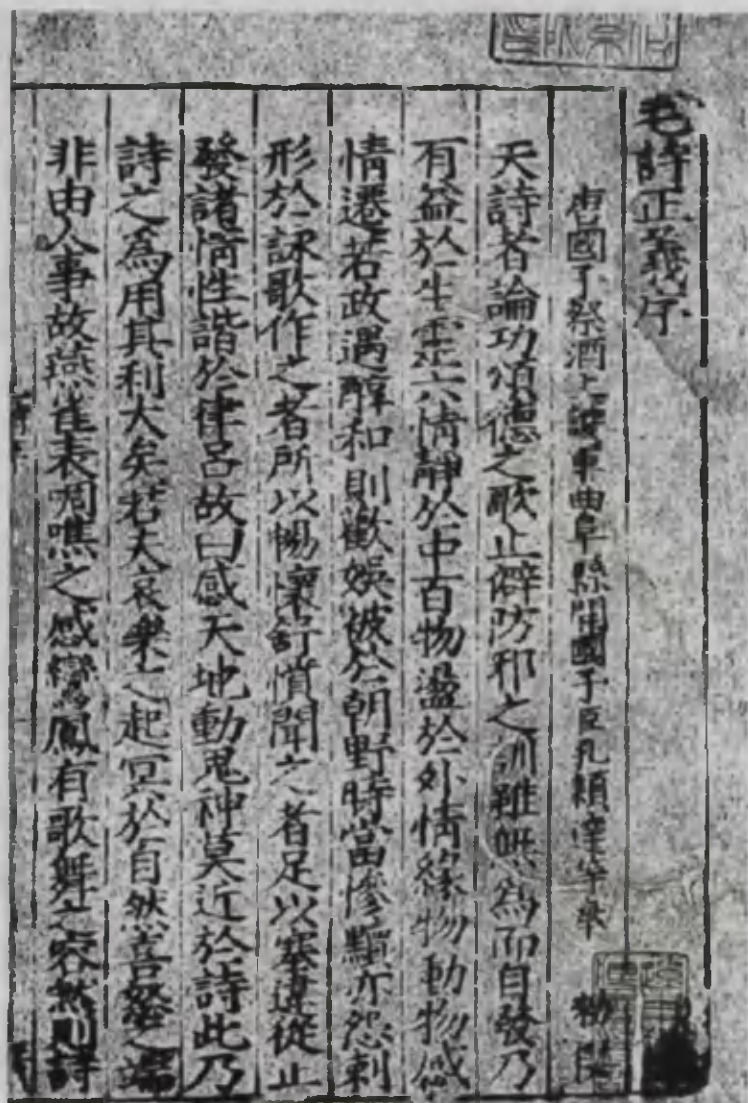 毛詩正義序
唐國子祭酒上護軍曲阜縣開國子臣孔穎達等奉 勑撰
夫詩者論功頌德之歌止僻防邪之訓雖無為而自發乃
有益於生靈六情靜於中百物盪於外情緣物動物感
情遷若政遇醇和則歡娛被於朝野時當慘黷亦怨刺
形於詠歌作之者所以暢懷舒憤聞之者足以塞違從正
發諸情性諧於律呂故曰感天地動鬼神莫近於詩此乃
詩之為用其利大矣若夫哀樂之起冥於自然喜怒之端
非由人事故燕雀表啁噍之感鸞鳳有歌舞之容然則詩